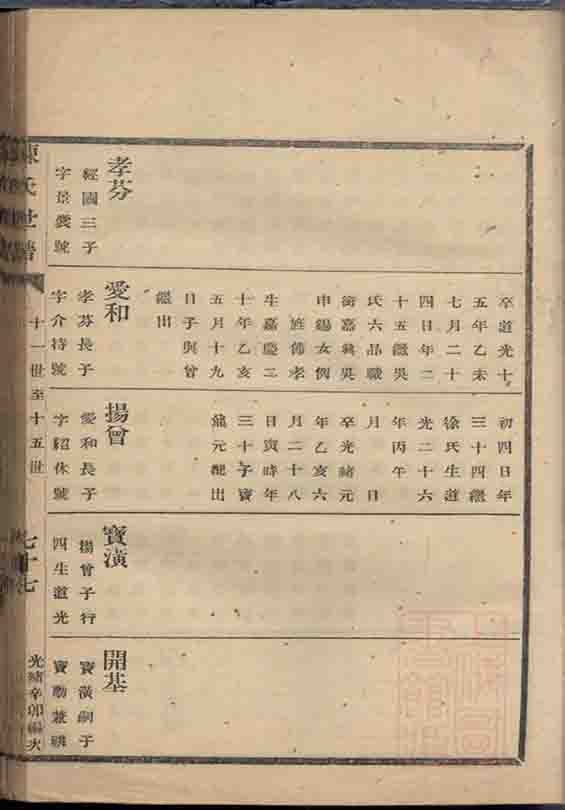 陳氏世譜
十一世至十五世
七十七
光緒辛卯編次
卒道光十
五年乙未
七月二十
四日年二
十五繼吳
氏六品職
銜嘉興吳
申錫女例
旌節孝
生嘉慶二
十年乙亥
五月十九
日子與曾
繼出
初四日年
三十四繼
徐氏生道
光二十六
年丙午
月 日
卒光緒元
年乙亥六
月二十八
日寅時年
三十子寶
元配出
孝芬
經國三子
字景 號
愛和
孝芬長子
字介特號
揚曾
愛和長子
字紹休號
寶潢
揚曾子行
四生道光
開基
寶潢嗣子
寶勳兼祧